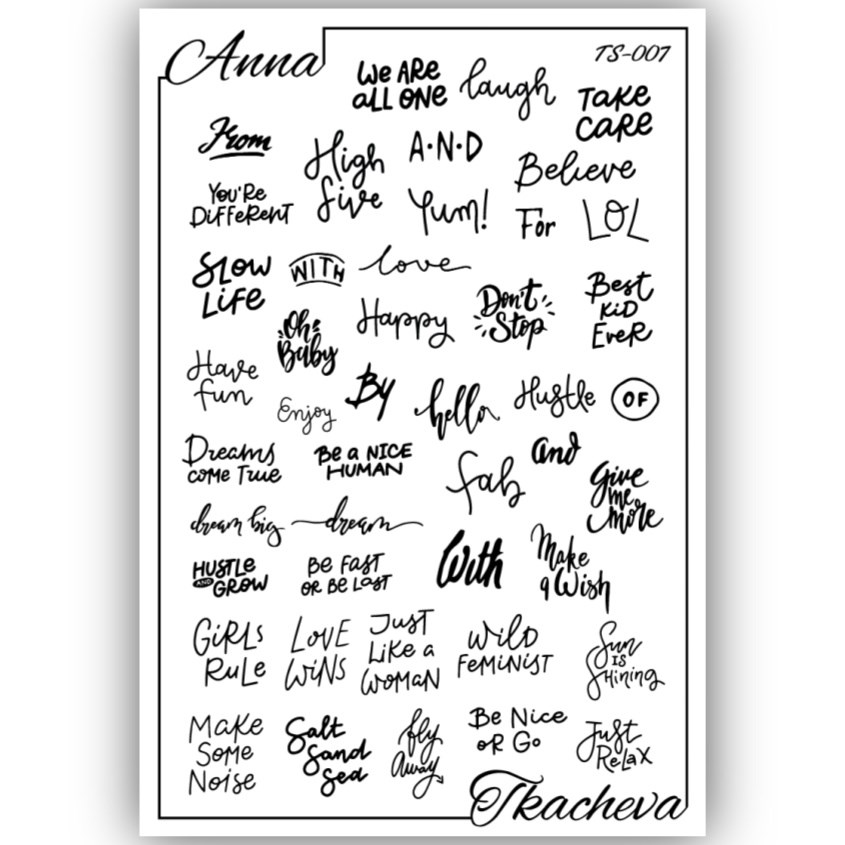 Anna
TS-007
We ARe
aLL ONe
laugh
TaKe
CaRe
From
High
five
A·N·D
Believe
You'Re
DiFFeReNT
Yum!
For
LOL
SLOW
LiFe
WITH
love
Oh
Baby
Happy
Don't
Stop
Best
KiD
EveR
Have
fun
Enjoy
By
hello
Hustle
OF
Dreams
come True
Be a NICE
HUMAN
fab
and
Give
me
more
dream big
dream
HUSTLe
AND
GROW
Be FaST
OR Be LaST
With
Make
a Wish
GiRLs
RuLe
LovE
WiNS
JuST
LiKe a
WOMaN
WiLD
FeMiNiST
Sun
IS
SHining
MaKe
SoMe
NoiSe
Salt
Sand
Sea
fly
away
Be Nice
oR Go
Just
ReLaX
Tkacheva